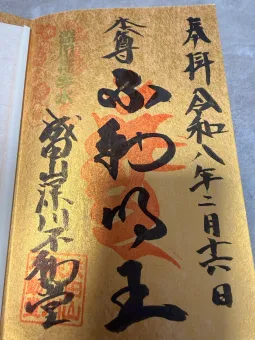 奉拝 令和八年二月十六日
本尊
不動明王
成田山深川不動堂